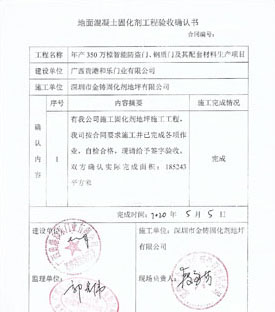 地面混凝土固化剂工程验收确认书
合同编号:
工程名称 年产350万樘智能防盗门、钢质门及其配套材料生产项目
建设单位 广西贵港和乐门业有限公司
施工单位 深圳市金铸固化剂地坪有限公司
序号 内容摘要 施工完成情况
确认内容
1
有我公司施工固化剂地坪施工工程,
我司按合同要求施工并已完成各项作
业,自检合格,现请给予签字验收,
双方确认实际完成面积:185243
平方米
完成
完成时间:2020年5月5日
建设单位:
施工单位:深圳市金铸固化剂地坪
有限公司
监理单位:
现场负责人: